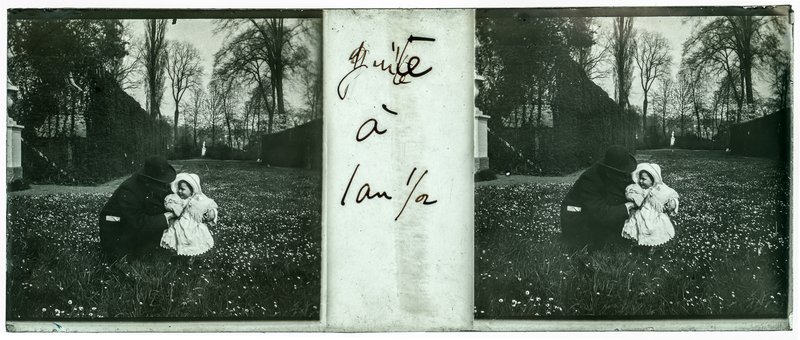 à
1 an 1/2